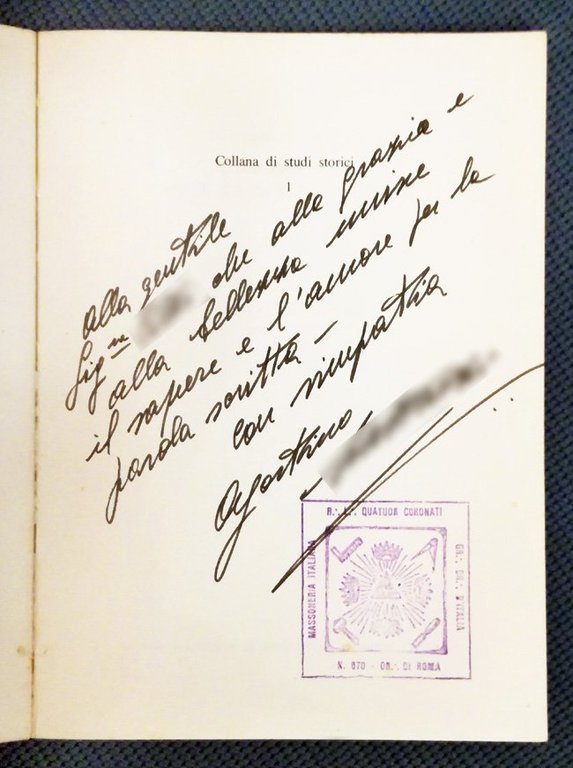 Collana di studi storici
1
alla gentile
Sig.ra che alla grazia e
alla bellezza unisce
il sapere e l'amore per la
parola scritta –
con simpatia
Agostino
R∴ L∴ QUATUOR CORONATI
MASSONERIA ITALIANA
GR∴ OR∴ D'ITALIA
N. 670 - OR∴ DI ROMA